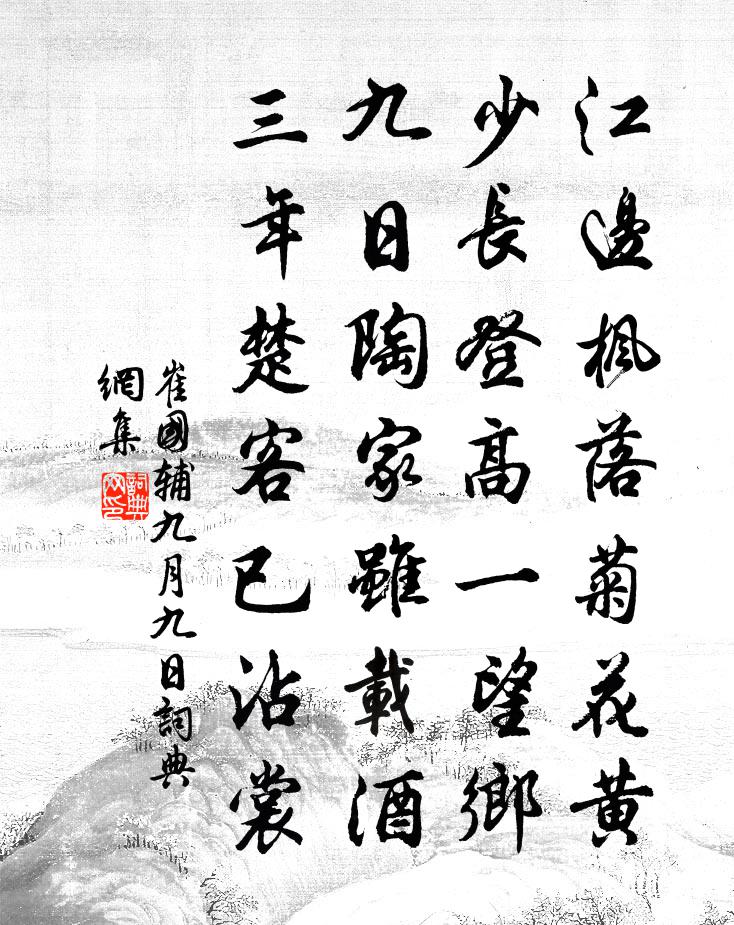 江邊楓落菊花黃
少長登高一望鄉
九日陶家雖載酒
三年楚客已沾裳
崔國輔九月九日詞典
網集
詞典
网印